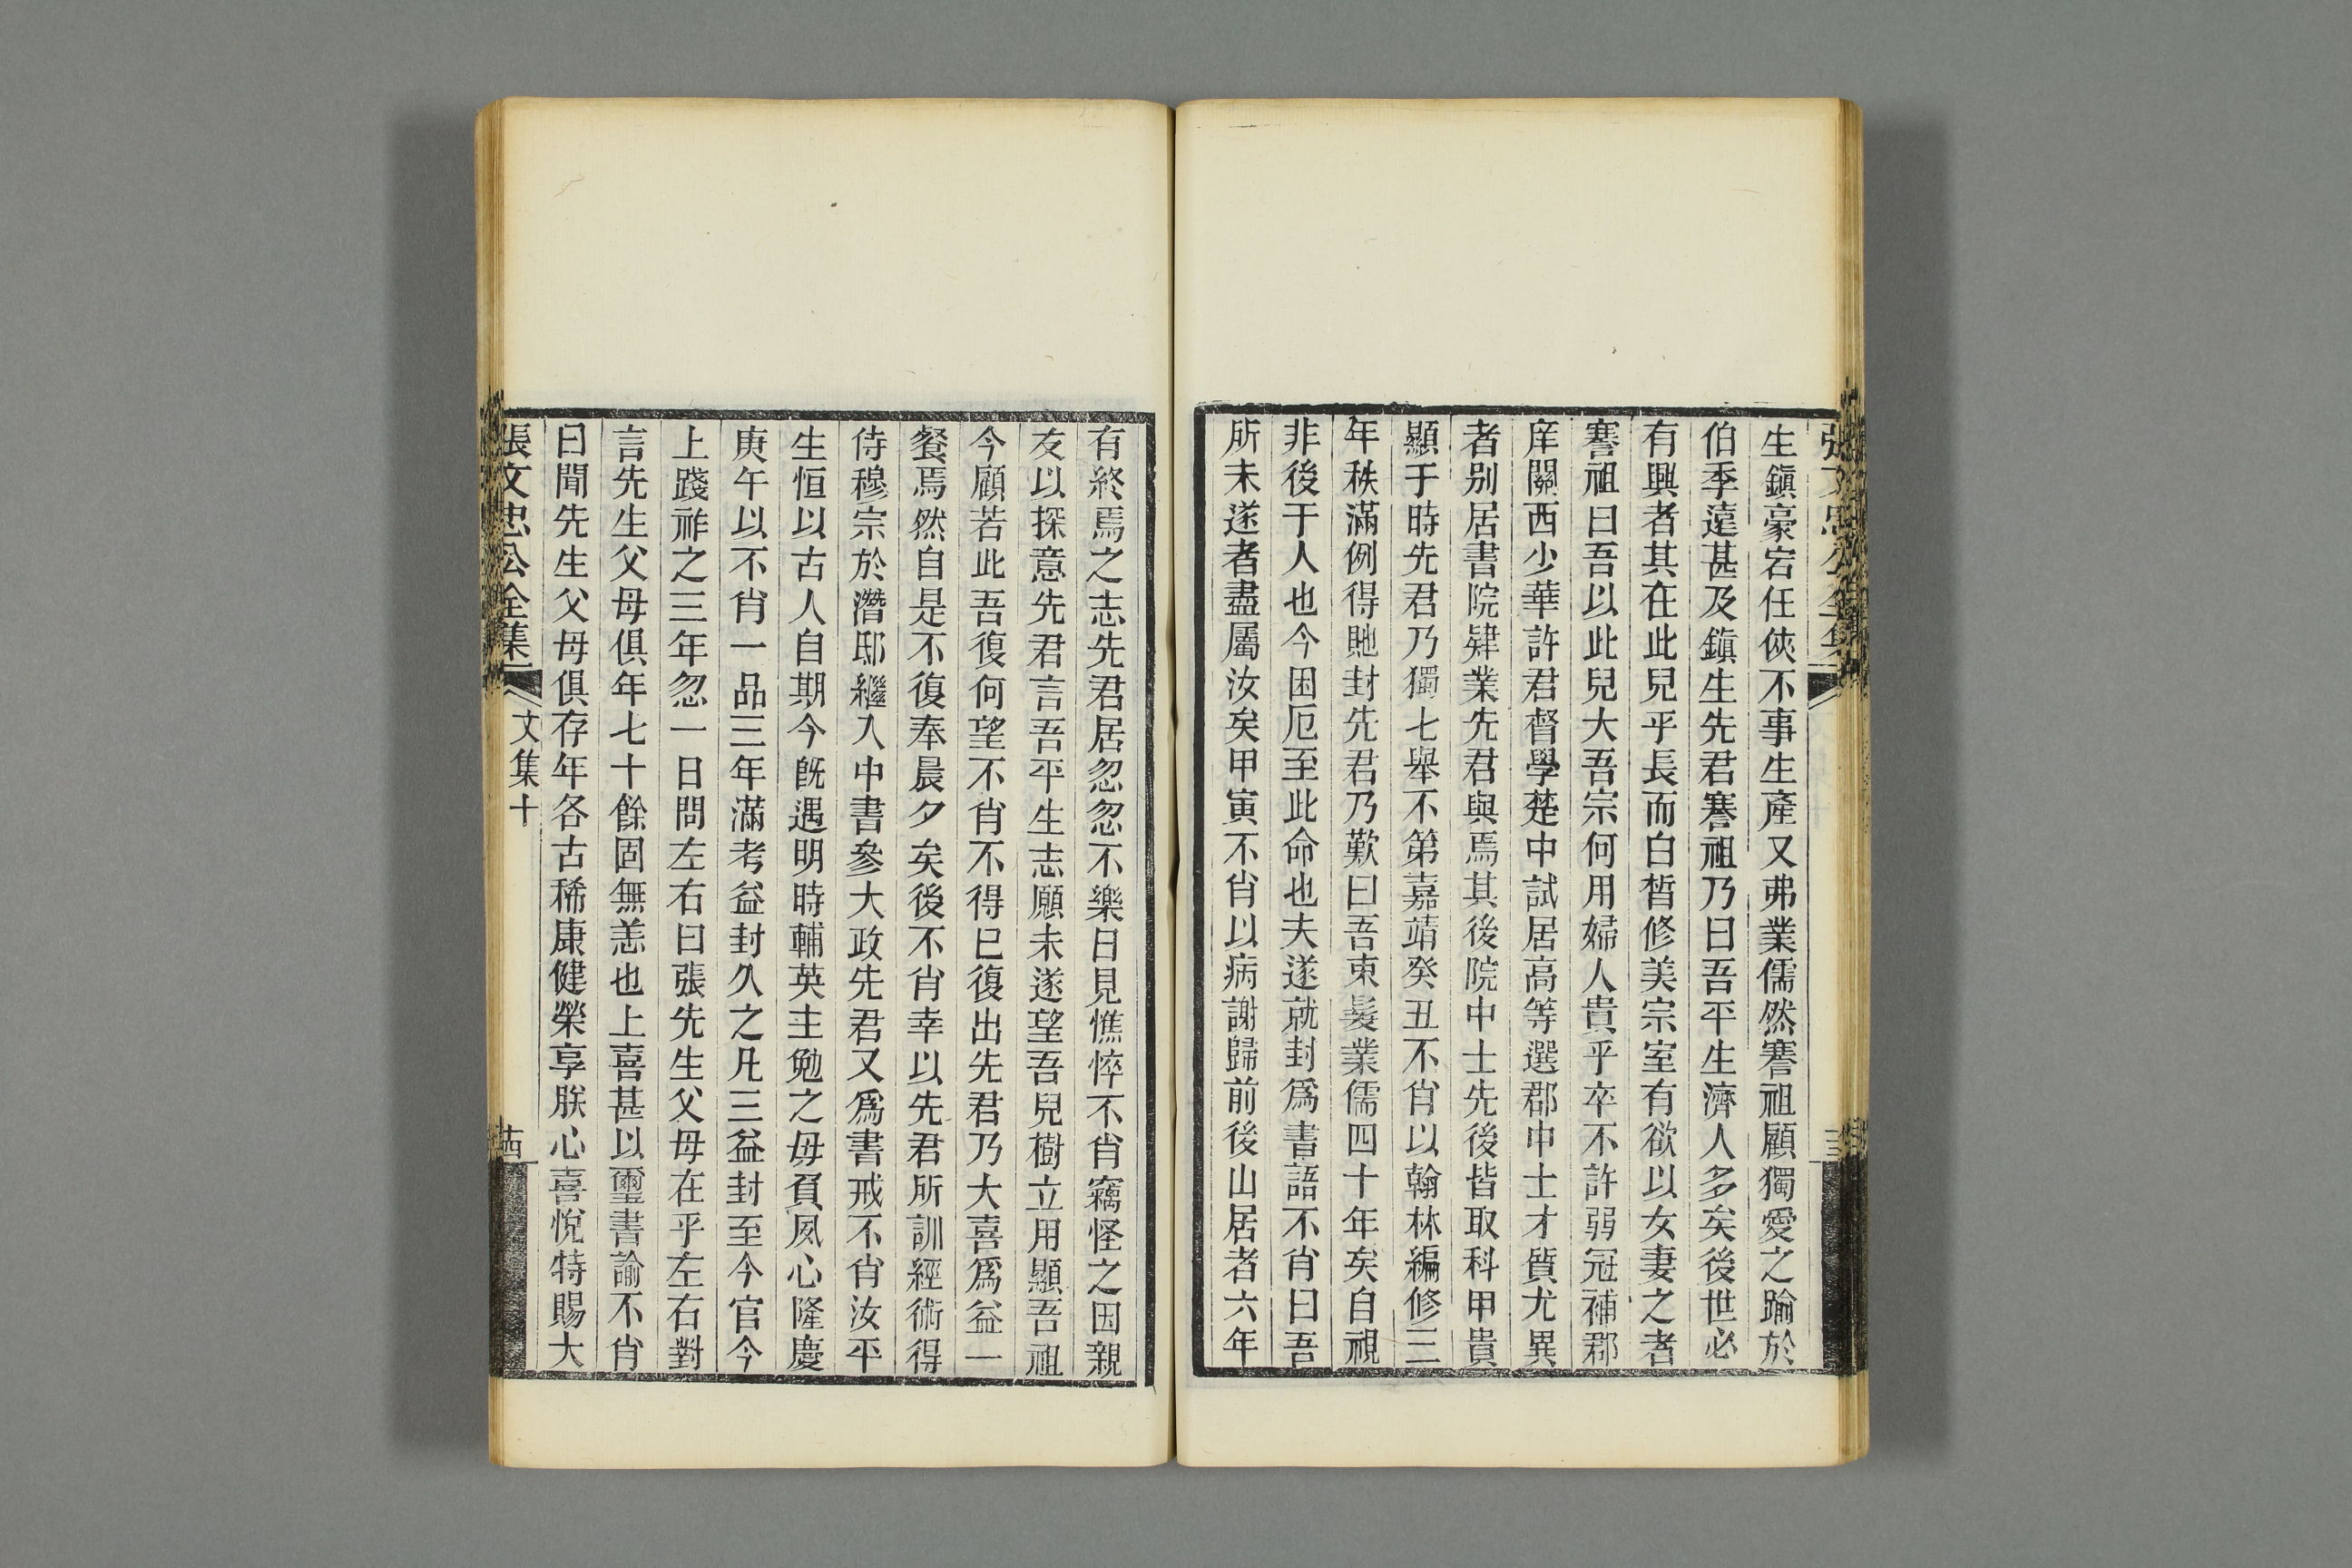 生鎮豪宕任俠不事生產又弗業儒然謇祖顧獨愛之踰於
伯季遠甚及鎮生先君謇祖乃曰吾平生濟人多矣後世必
有興者其在此兒乎長而白皙修美宗室有欲以女妻之者
謇祖曰吾以此兒大吾宗何用婦人貴乎卒不許弱冠補郡
庠關西少華許君督學楚中試居高等選郡中士才質尤異
者别居書院肄業先君與焉其後院中士先後皆取科甲貴
顯于時先君乃獨七舉不第嘉靖癸丑不肖以翰林編修三
年秩滿例得貤封先君乃歎曰吾束髮業儒四十年矣自視
非後于人也今困厄至此命也夫遂就封爲書語不肖曰吾
所未遂者盡屬汝矣甲寅不肖以病謝歸前後山居者六年
有終焉之志先君居忽忽不樂日見憔悴不肖竊怪之因親
友以探意先君言吾平生志願未遂望吾兒樹立用顯吾祖
今顧若此吾復何望不肖不得已復出先君乃大喜爲益一
餐焉然自是不復奉晨夕矣後不肖幸以先君所訓經術得
侍穆宗於潛邸繼入中書參大政先君又爲書戒不肖汝平
生恒以古人自期今既遇明時輔英主勉之毋負夙心隆慶
庚午以不肖一品三年滿考益封久之凡三益封至今官今
上踐祚之三年忽一日問左右曰張先生父母在乎左右對
言先生父母俱年七十餘固無恙也上喜甚以璽書諭不肖
曰聞先生父母俱存年各古稀康健榮享朕心喜悅特賜大
張文忠公全集
文集十
十四